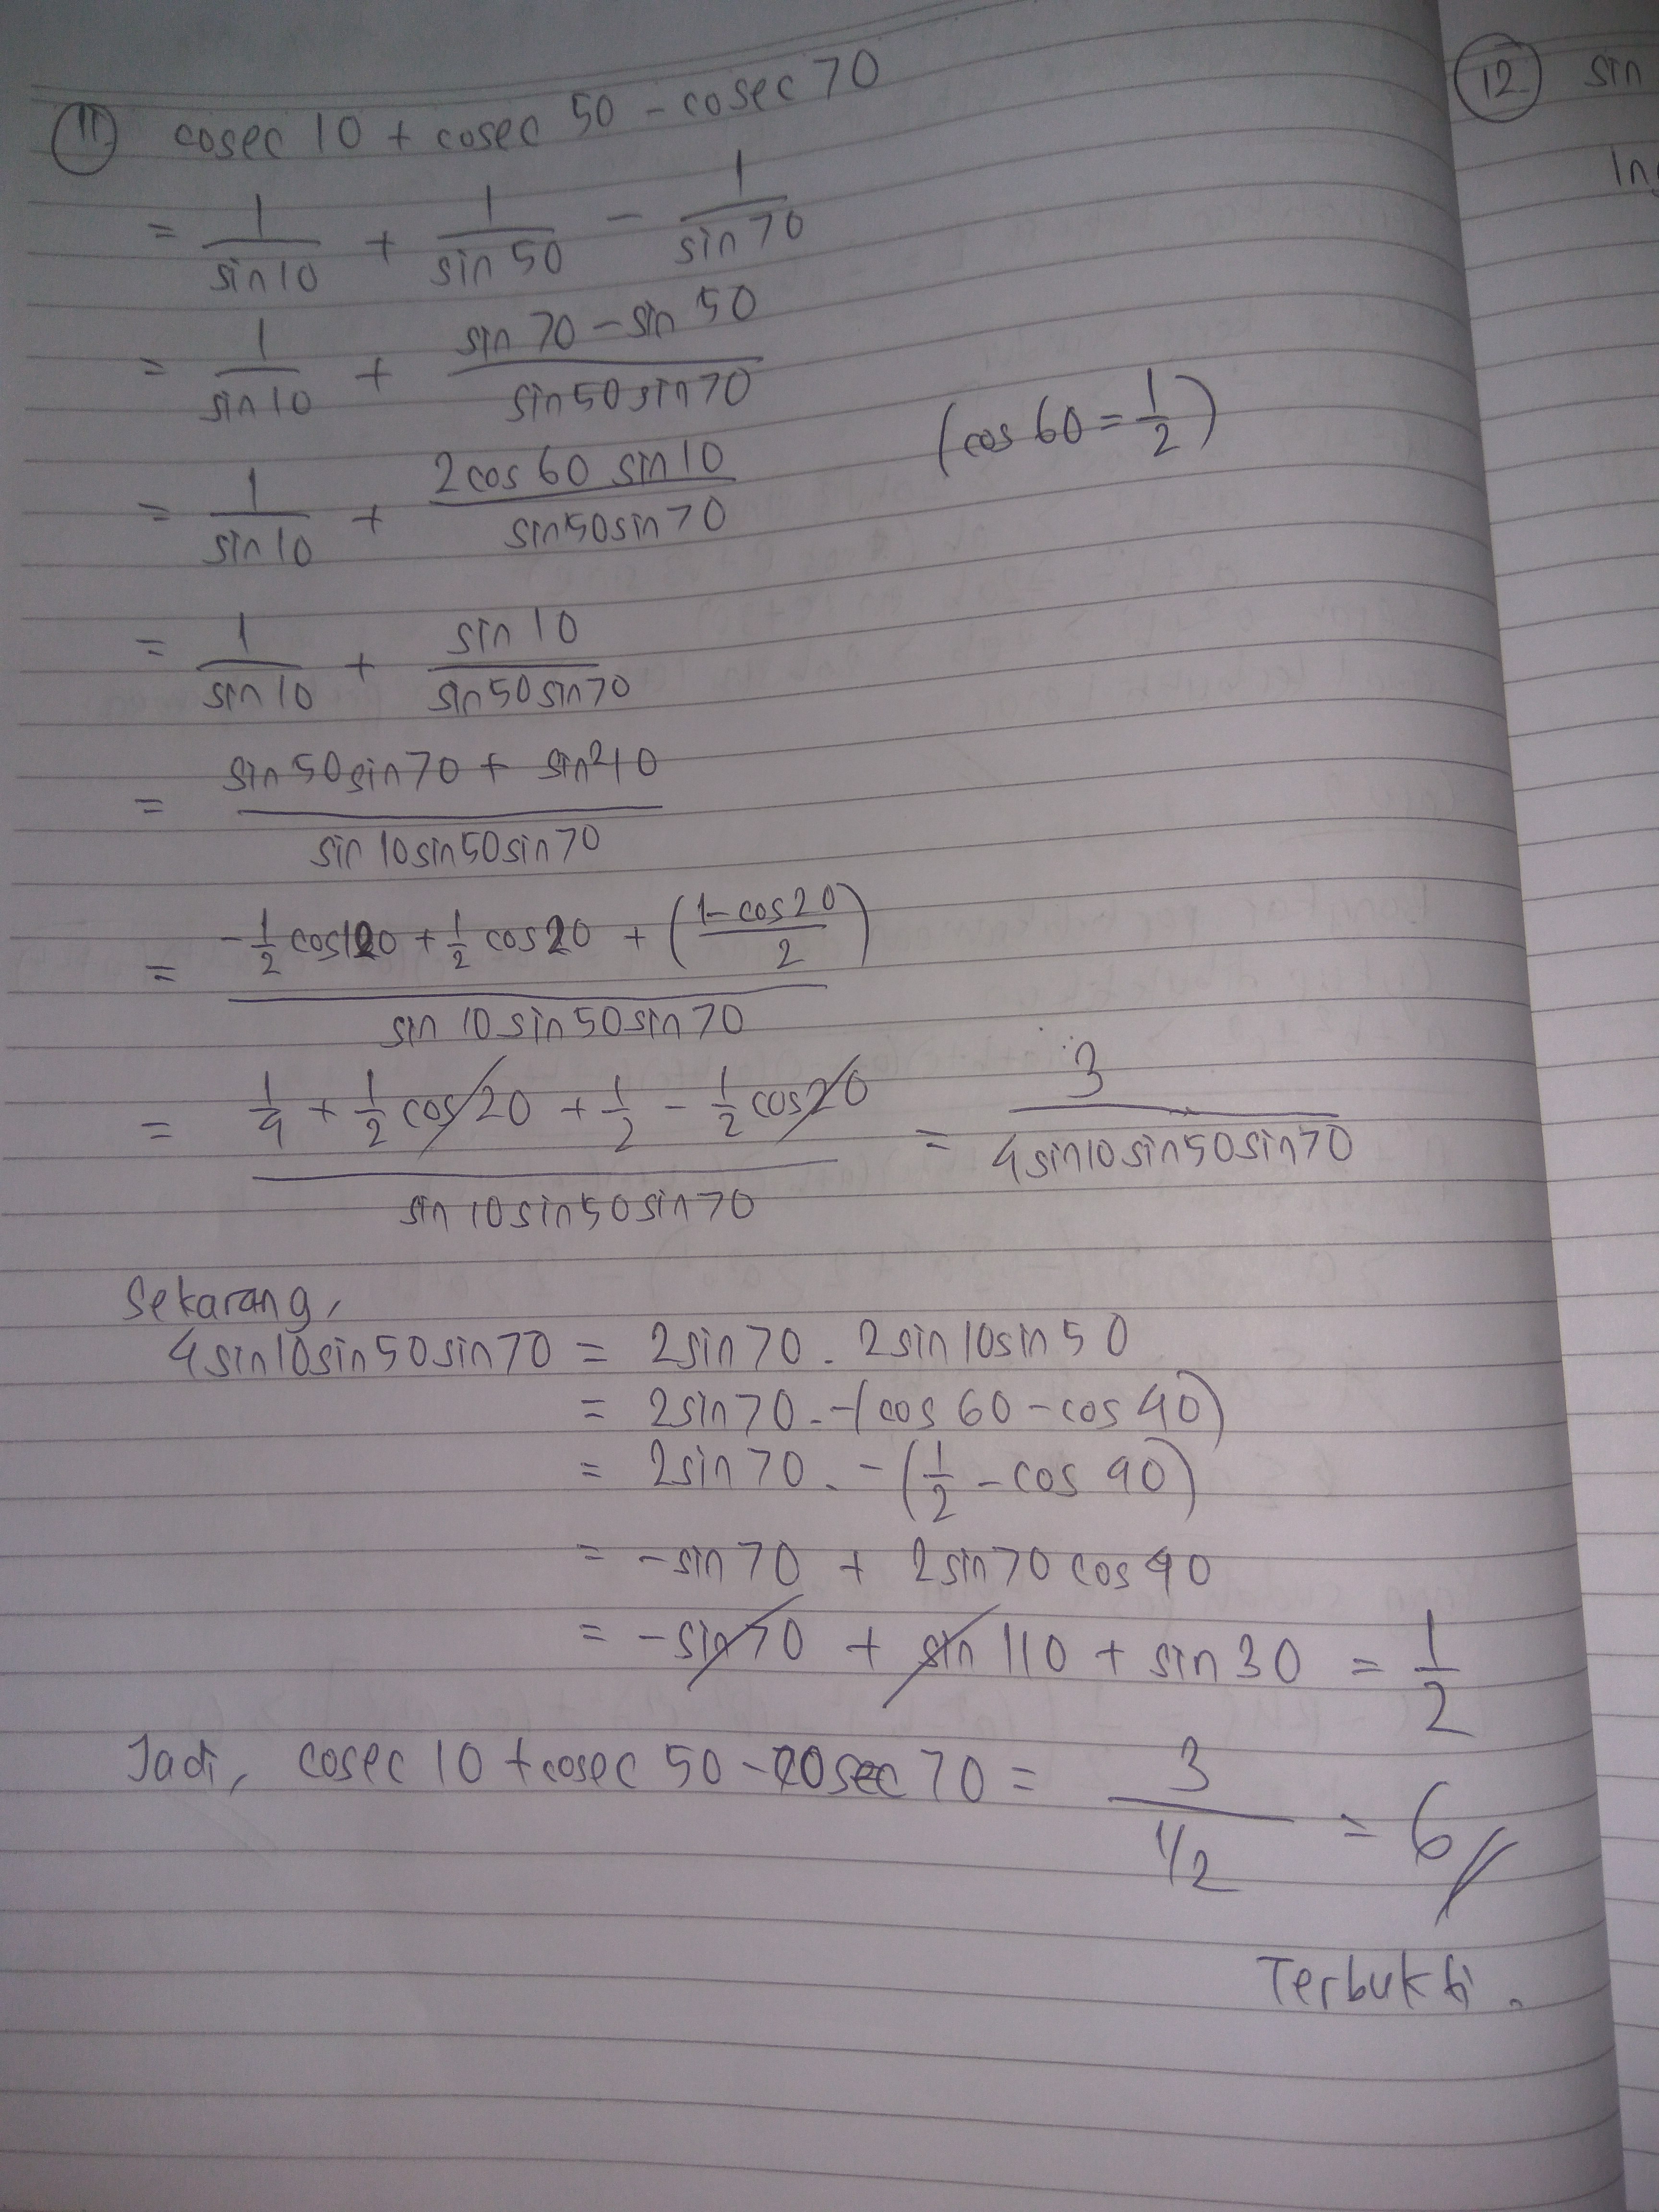 (11) cosec 10 + cosec 50 - cosec 70
= 1/sin 10 + 1/sin 50 - 1/sin 70
= 1/sin 10 + (sin 70 - sin 50)/(sin 50 sin 70)
= 1/sin 10 + (2 cos 60 sin 10)/(sin 50 sin 70) (cos 60 = 1/2)
= 1/sin 10 + sin 10/(sin 50 sin 70)
= (sin 50 sin 70 + sin² 10)/(sin 10 sin 50 sin 70)
= (-1/2 cos 120 + 1/2 cos 20 + ((1 - cos 20)/2))/(sin 10 sin 50 sin 70)
= (1/4 + 1/2 cos 20 + 1/2 - 1/2 cos 20)/(sin 10 sin 50 sin 70) = 3/(4 sin 10 sin 50 sin 70)
Sekarang,
4 sin 10 sin 50 sin 70 = 2 sin 70 . 2 sin 10 sin 50
= 2 sin 70 . -(cos 60 - cos 40)
= 2 sin 70 . -(1/2 - cos 40)
= - sin 70 + 2 sin 70 cos 40
= - sin 70 + sin 110 + sin 30 = 1/2
Jadi, cosec 10 + cosec 50 - cosec 70 = 3/(1/2) = 6 //
Terbukti.
(12) sin